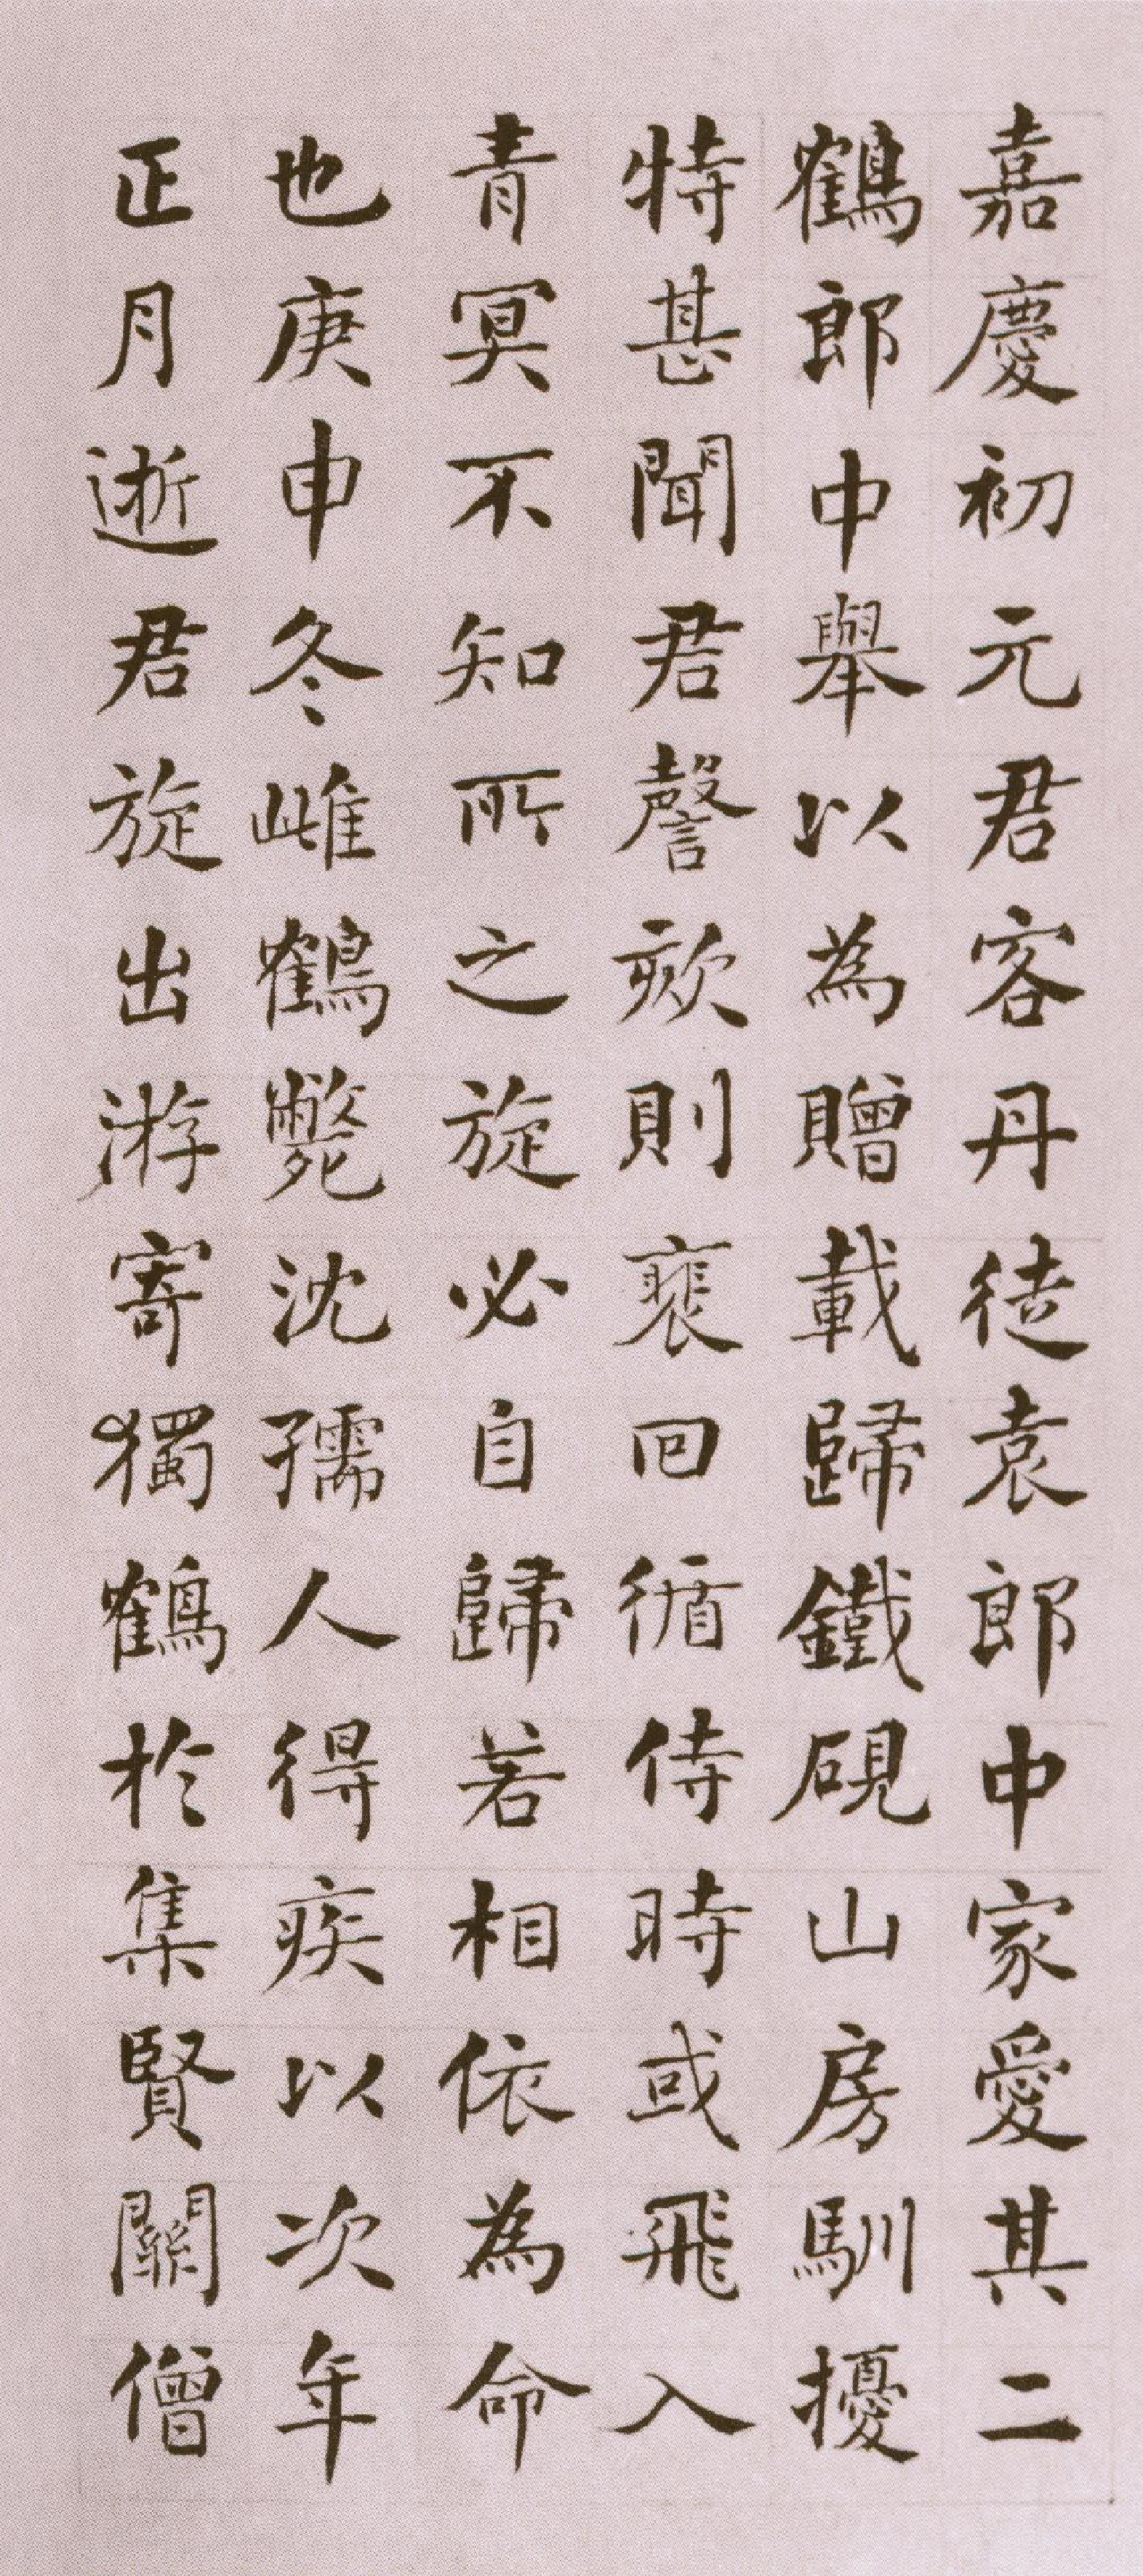 嘉慶初元君客丹徒袁郎中家愛其二
鶴郎中舉以為贈載歸鐵硯山房馴擾
特甚聞君謦欬則裵回循侍時或飛入
青冥不知所之旋必自歸若相依為命
也庚申冬雌鶴斃沈孺人得疾以次年
正月逝君旋出游寄獨鶴於集賢關僧